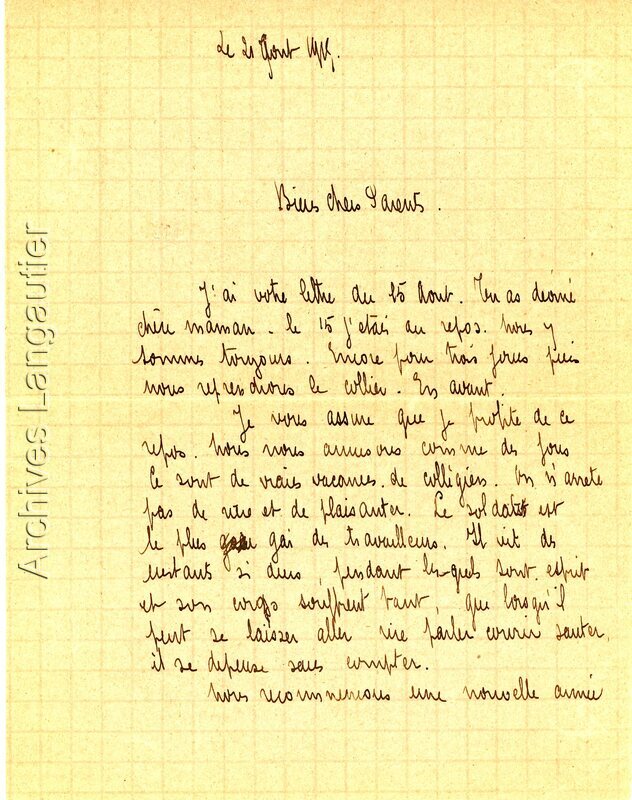 Le 21 Aout 1915.
Biens chers Parents.
J'ai votre lettre du 15 Aout. Tu as deviné
chère maman. le 15 j'etais au repos. nous y
sommes toujours. Encore pour trois jours puis
nous reprendrons le collier. En avant.
Je vous assure que je profite de ce
repos. nous nous amusons comme des fous
Ce sont de vraies vacances de collégien. On n'arrete
pas de rire et de plaisanter. Le soldat est
le plus gai des travailleurs. Il vit des
instants si durs, pendant lesquels sont esprit
et son corps souffrent tant, que lorsqu'il
peut se laisser aller rire parler courir sauter,
il se depense sans compter.
nous recommencons une nouvelle année
Archives Langautier